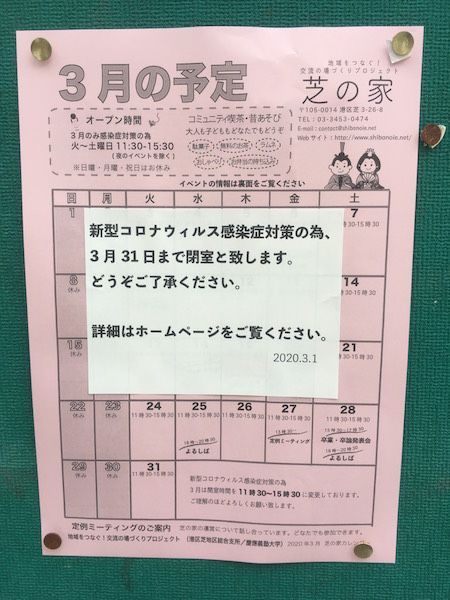 3月の予定
地域をつなぐ！
交流の場づくりプロジェクト
芝の家
〒105-0014 港区芝3-26-8
TEL：03-3453-0474
E-mail：contact@shibanoie.net
Webサイト：http://www.shibanoie.net/
オープン時間
3月のみ感染症対策の為
火〜土曜日 11:30-15:30
（夜のイベントを除く）
※日曜・月曜・祝日はお休み
コミュニティ喫茶・昔あそび
大人も子どももどなたでもどうぞ
駄菓子 無料のお茶 ラムネ
おしゃべり お弁当の持ち込み
イベントの情報は裏面をご覧ください
日 月 火 水 木 金 土
1 休み
7
8 休み
14
15 休み
21
新型コロナウィルス感染症対策の為、
3月31日まで閉室と致します。
どうぞご了承ください。
詳細はホームページをご覧ください。
2020.3.1
22 23 24 25 26 27 28
休み 休み 11時30-15時30 11時30-15時30 11時30-15時30
よるしば 定例ミーティング 卒業・卒論発表会
よるしば
29 30 31
休み 休み 11時30-15時30
新型コロナウィルス感染症対策の為
3月は開室時間を11時30〜15時30に変更しております。
ご理解のほどよろしくお願い致します。
定例ミーティングのご案内 芝の家の運営について話し合っています。どなたでも参加できます。
地域をつなぐ！交流の場づくりプロジェクト （港区芝地区総合支所／慶應義塾大学） 2020年3月 芝の家カレンダー